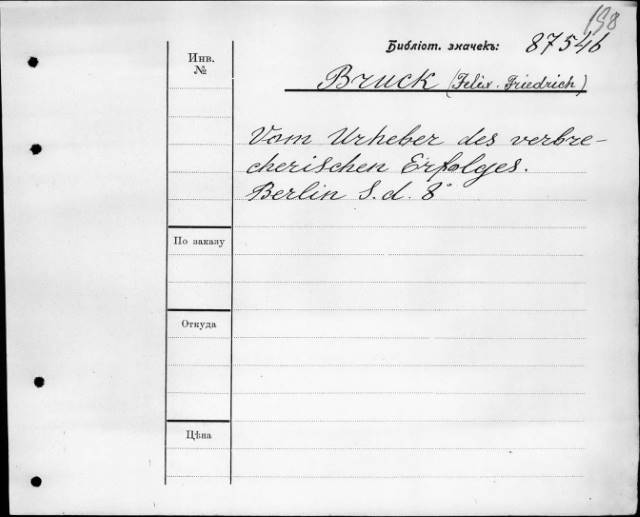 158
Библіот. значекъ: 87546
Инв.
№
Bruck (Felix-Friedrich)
Vom Urheber des verbre-
cherischen Erfolges.
Berlin S. d. 8°
По заказу
Откуда
Цѣна